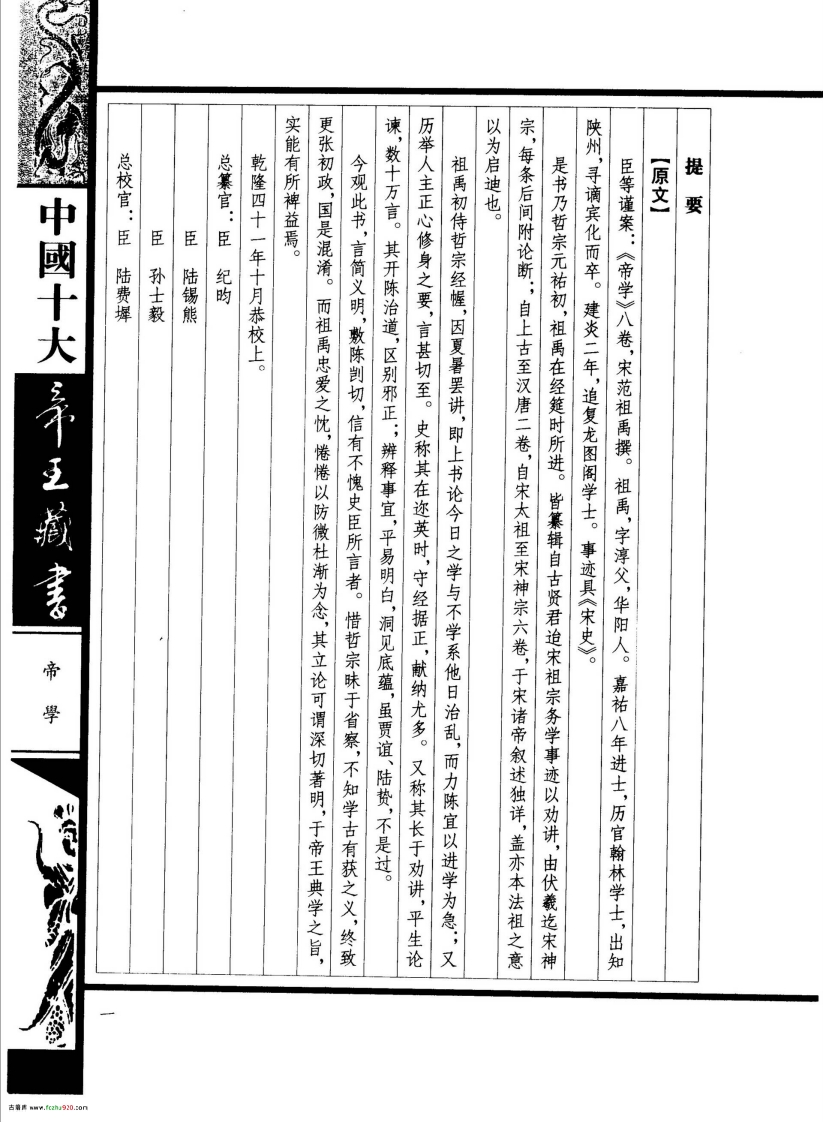 提要
【原文】
臣等谨案：《帝学》八卷，宋范祖禹撰。祖禹，字淳父，华阳人。嘉祐八年进士，历官翰林学士，出知
陕州，寻谪宾化而卒。建炎二年，追复龙图阁学士。事迹具《宋史》。
是书乃哲宗元祐初，祖禹在经筵时所进。皆纂辑自古贤君迨宋祖宗务学事迹以劝讲，由伏羲迄宋神
宗，每条后间附论断；自上古至汉唐二卷，自宋太祖至宋神宗六卷，于宋诸帝叙述独详，盖亦本法祖之意
以为启迪也。
祖禹初侍哲宗经幄，因夏暑罢讲，即上书论今日之学与不学系他日治乱，而力陈宜以进学为急；又
历举人主正心修身之要，言甚切至。史称其在迩英时，守经据正，献纳尤多。又称其长于劝讲，平生论
谏，数十万言。其开陈治道，区别邪正；辨释事宜，平易明白，洞见底蕴，虽贾谊、陆贽，不是过。
今观此书，言简义明，敷陈剀切，信有不愧史臣所言者。惜哲宗昧于省察，不知学古有获之义，终致
更张初政，国是混淆。而祖禹忠爱之忱，惓惓以防微杜渐为念，其立论可谓深切著明，于帝王典学之旨，
实能有所裨益焉。
乾隆四十一年十月恭校上。
总纂官：臣 纪昀
臣 陆锡熊
臣 孙士毅
总校官：臣 陆费墀
中國十大
帝王藏書
帝學
一
古籍库 www.fczhu920.com